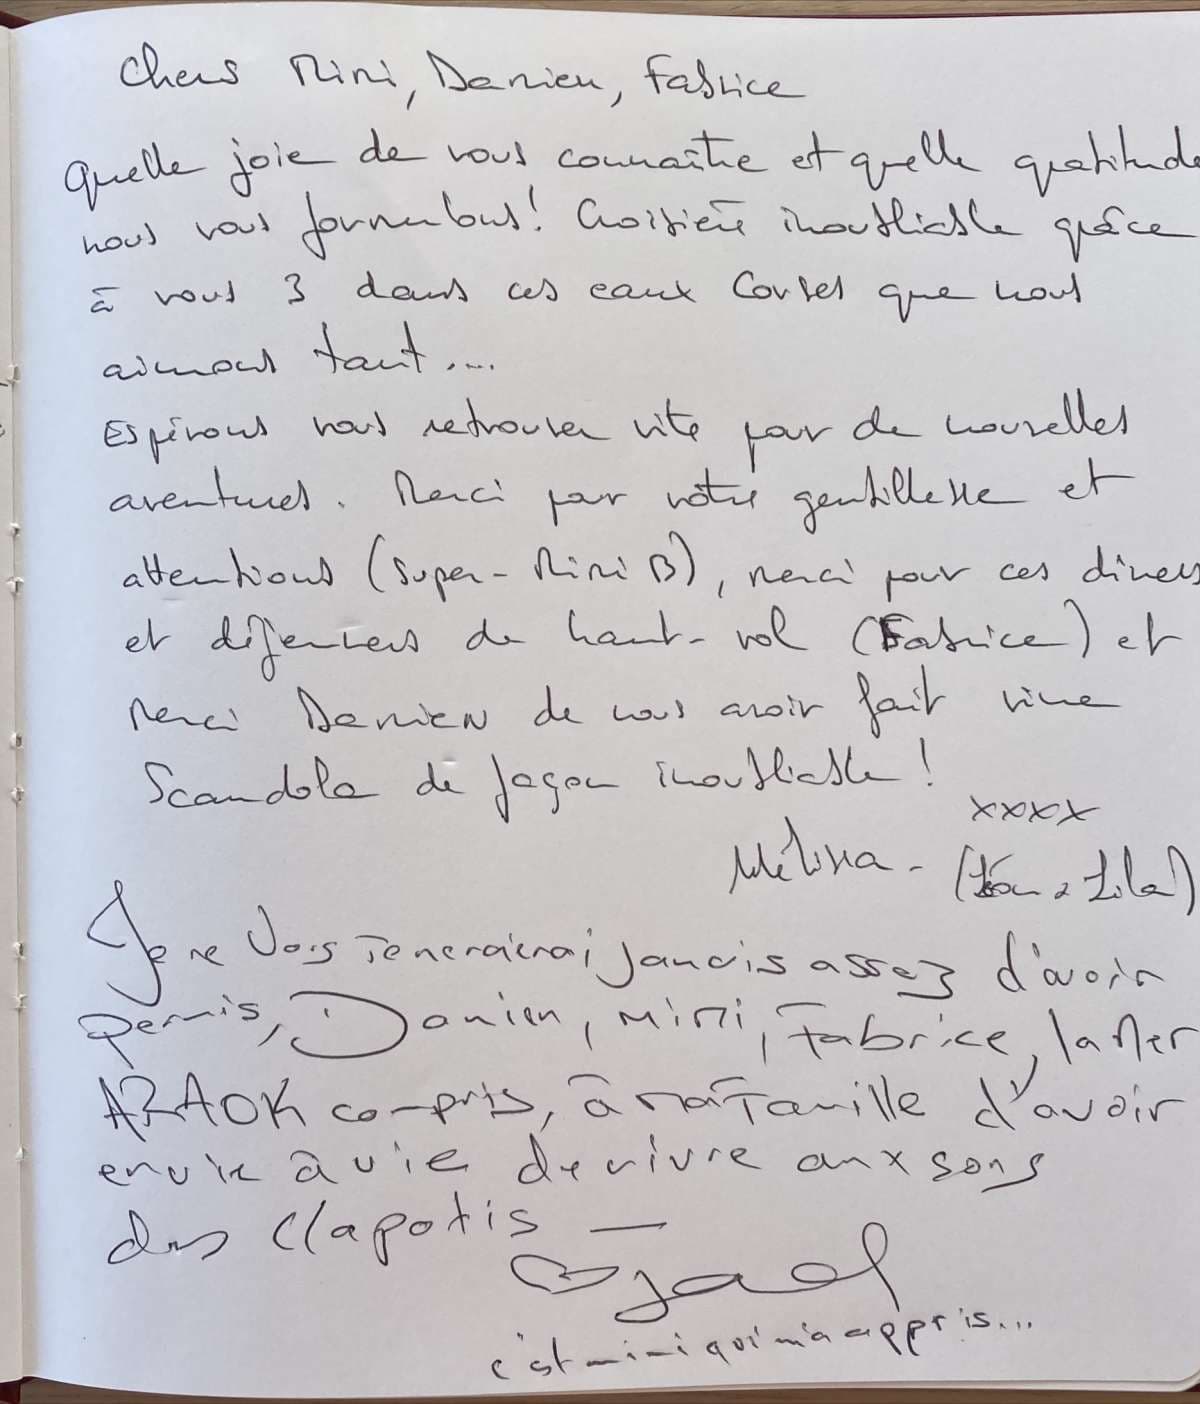 Chers Mimi, Damien, Fabrice
Quelle joie de vous connaître et quelle gratitude
nous vous formulons! Croisière inoubliable grâce
à vous 3 dans ces eaux Corses que nous
aimons tant....
Espérons vous retrouver vite pour de nouvelles
aventures. Merci pour votre gentillesse et
attentions (Super-Mimi B), merci pour ces diners
et déjeuners de haut-vol (Fabrice) et
merci Damien de nous avoir fait vivre
Scandola de façon inoubliable!
xxxx
Mélissa - (Léon & Lila)
Je ne Vous remercierai jamais assez d'avoir
permis, Damien, Mimi, Fabrice, la Mer
ARAOK compris, à ma famille d'avoir
envie à vie de vivre aux sons
des clapotis —
c'est mimi qui m'a appris...